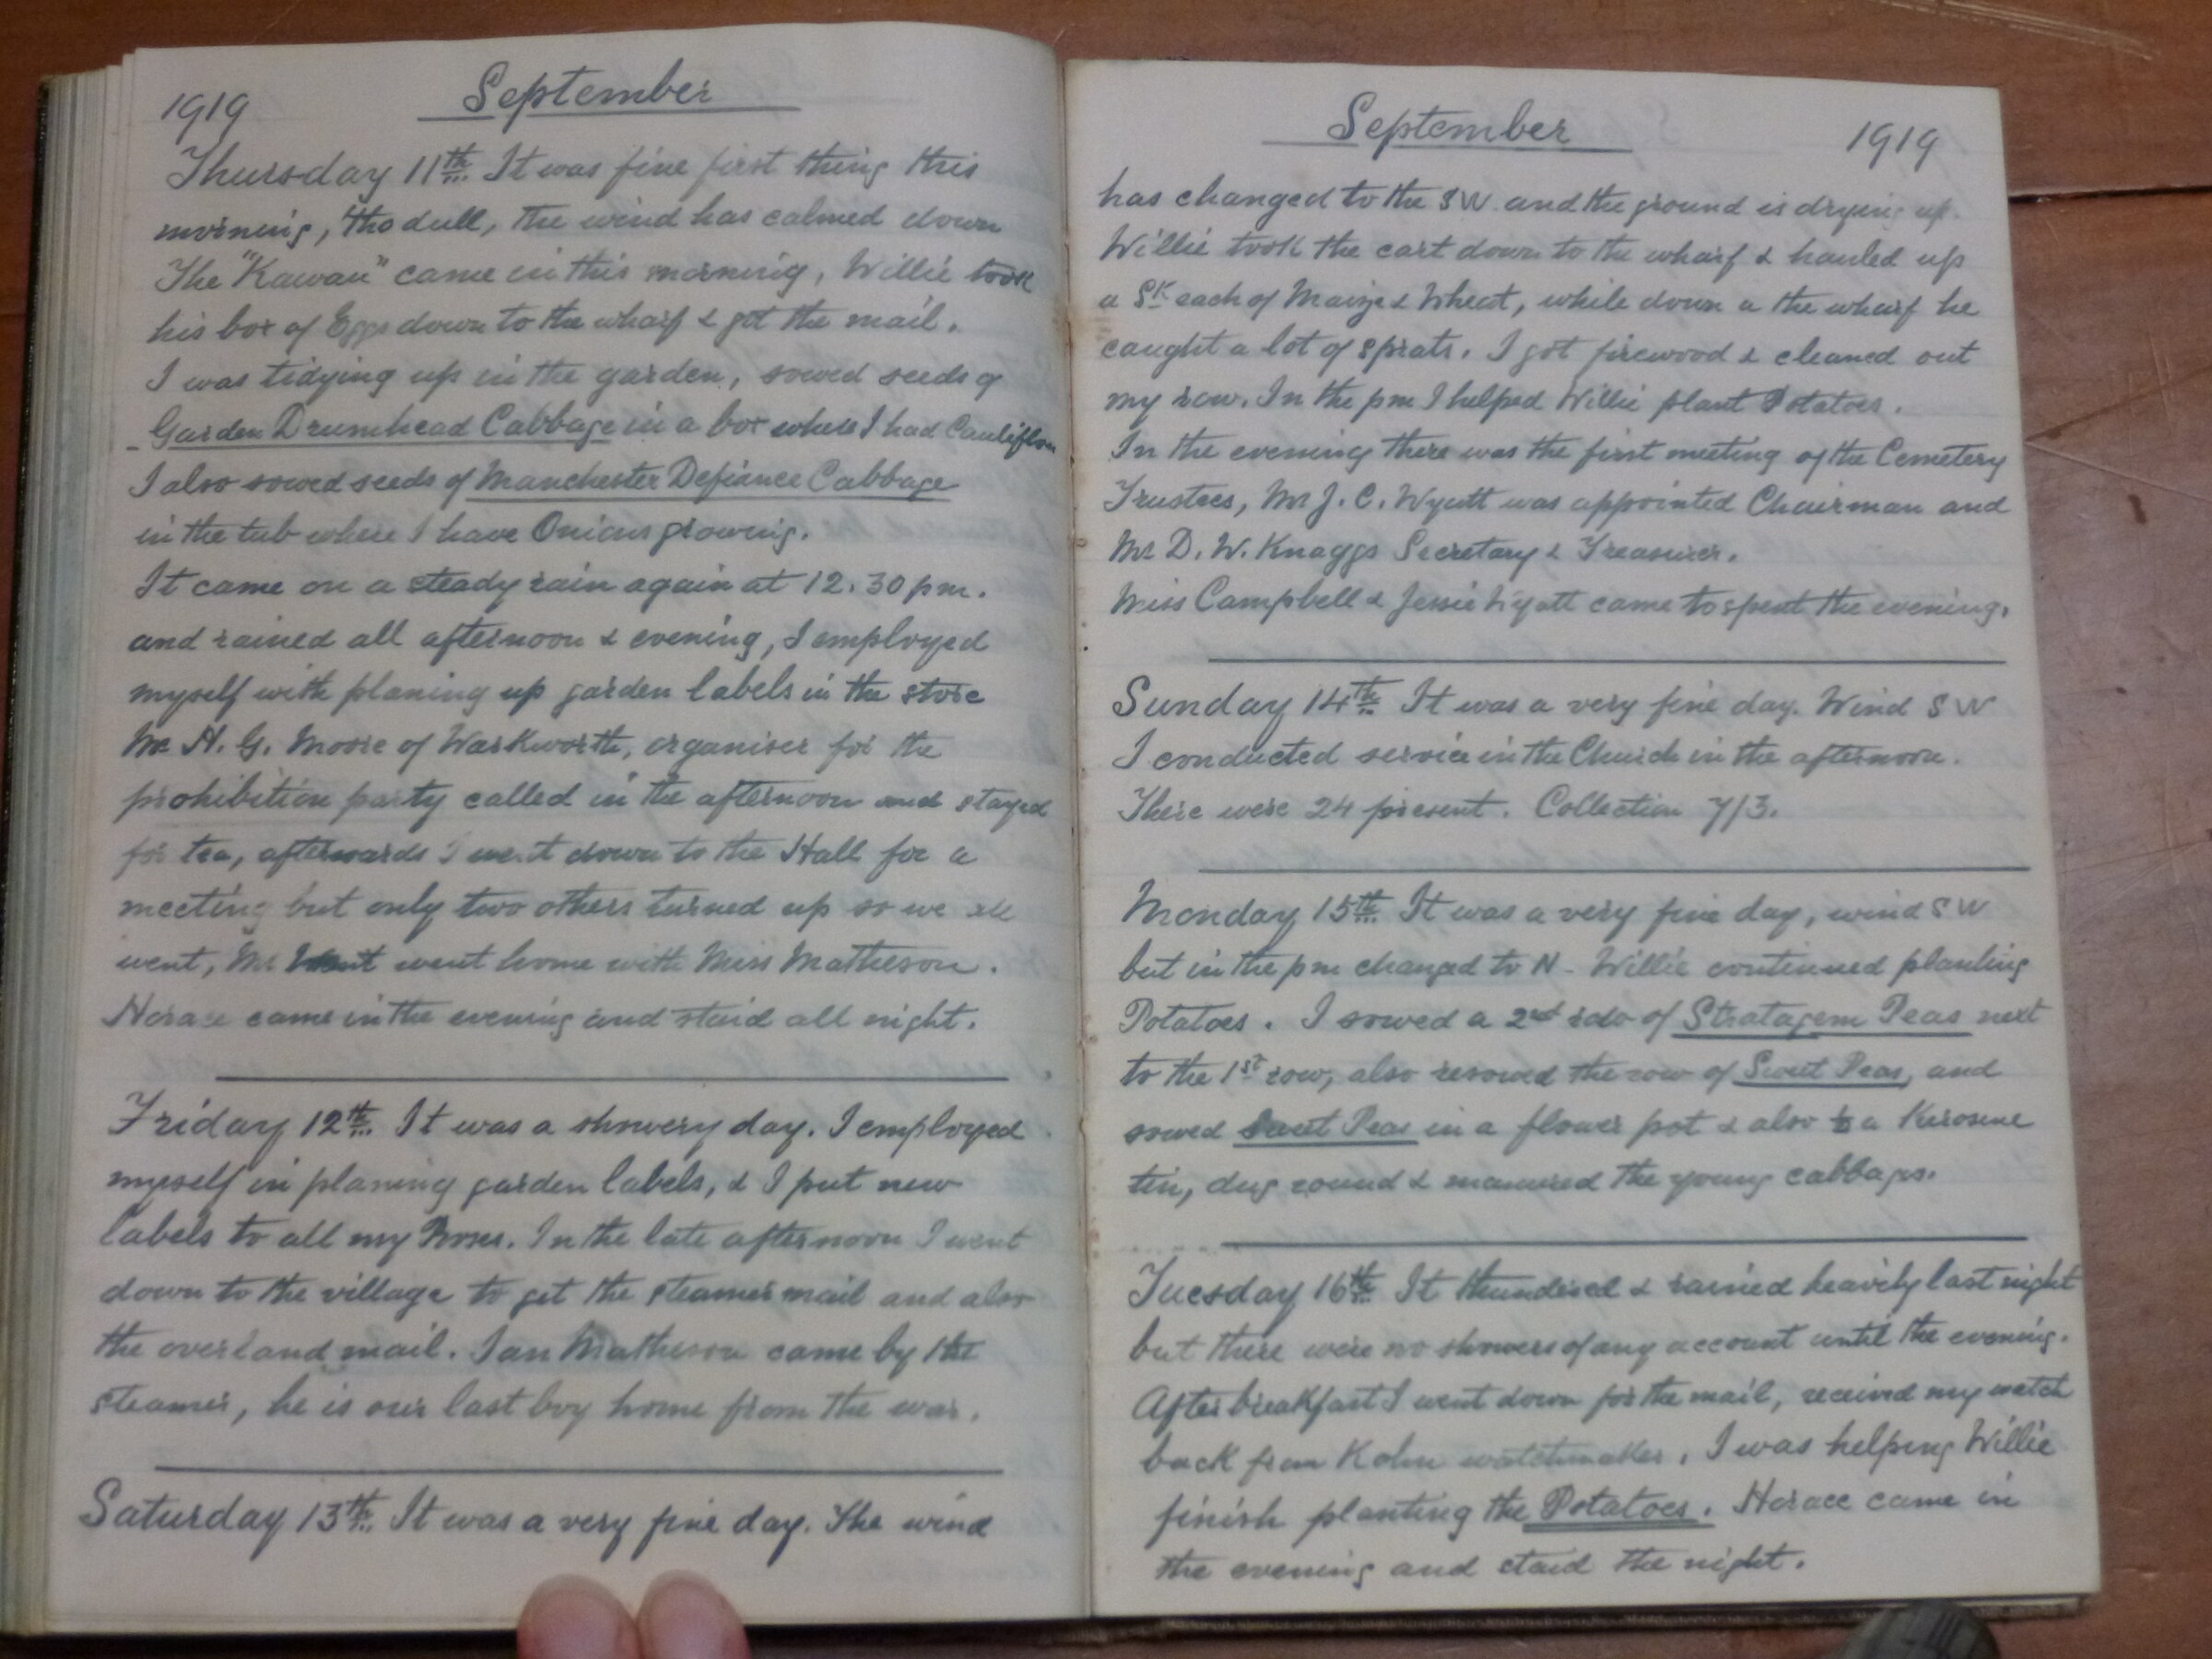 1919 September
Thursday 11th. It was fine first thing this
morning, tho dull, the wind has calmed down
The "Kawau" came in this morning, Willie took
his box of Eggs down to the wharf & got the mail.
I was tidying up in the garden, sowed seeds of
Garden Drumhead Cabbage in a box where I had Cauliflow
I also sowed seeds of Manchester Defiance Cabbage
in the tub where I have Onions growing.
It came on a steady rain again at 12.30 pm.
and rained all afternoon & evening, I employed
myself with planing up garden labels in the store
Mr H. G. Moore of Warkworth, organiser for the
prohibition party called in the afternoon and stayed
for tea, afterwards I went down to the Hall for a
meeting but only two others turned up so we all
went, Mr went home with Miss Matheson.
Horace came in the evening and staid all night.
Friday 12th. It was a showery day. I employed
myself in planing garden labels, & I put new
labels to all my Roses. In the late afternoon I went
down to the village to get the steamer mail and also
the overland mail. Ian Matheson came by the
steamer, he is our last boy home from the war.
Saturday 13th. It was a very fine day. The wind
September 1919
has changed to the SW and the ground is drying up.
Willie took the cart down to the wharf & hauled up
a Sk each of Maize & Wheat, while down a the wharf he
caught a lot of sprats. I got firewood & cleaned out
my row. In the pm I helped Willie plant Potatoes.
In the evening there was the first meeting of the Cemetery
Trustees, Mr J. C. Wyatt was appointed Chairman and
Mr D. W. Knaggs Secretary & Treasurer.
Miss Campbell & Jessie Wyatt came to spent the evening.
Sunday 14th. It was a very fine day. Wind SW
I conducted service in the Church in the afternoon.
There were 24 present. Collection 7/3.
Monday 15th. It was a very fine day, wind SW
but in the pm changed to N - Willie continued planting
Potatoes. I sowed a 2nd row of Stratagem Peas next
to the 1st row, also resowed the row of Sweet Peas, and
sowed Sweet Peas in a flower pot & also a Kerosene
tin, dug round & manured the young cabbages.
Tuesday 16th. It thundered & rained heavily last night
but there were no showers of any account until the evening.
After breakfast I went down for the mail, received my watch
back from Kohn watchmaker. I was helping Willie
finish planting the Potatoes. Horace came in
the evening and staid the night.